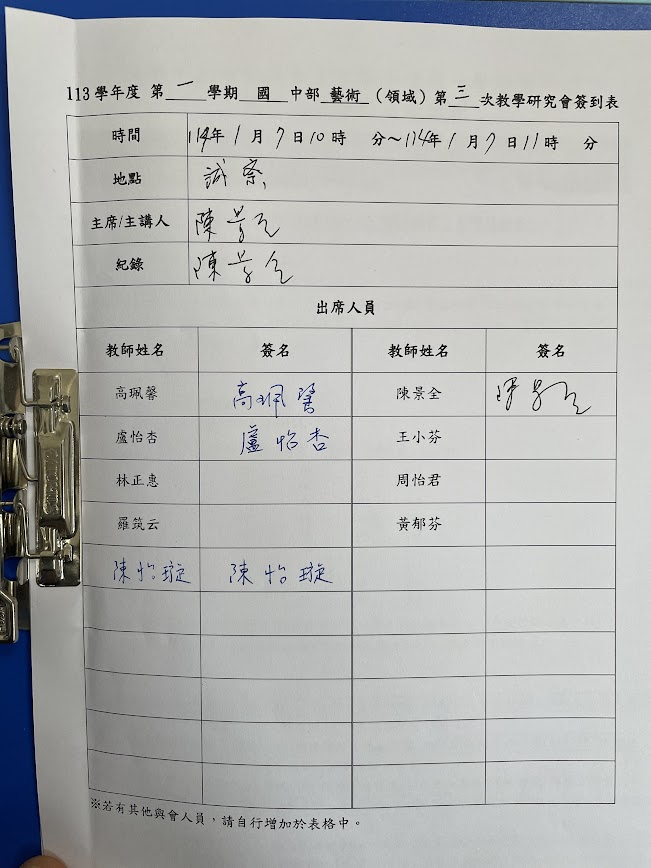 113學年度 第一學期 國 中部 藝術 （領域）第 三 次教學研究會簽到表
時間 114年 1 月 7 日 10 時 分～114年 1 月 7 日 11 時 分
地點 誠
主席/主講人 陳景全
紀錄 陳景全
出席人員
教師姓名 簽名 教師姓名 簽名
高珮馨 高珮馨 陳景全 陳景全
盧怡杏 盧怡杏 王小芬
林正惠 周怡君
羅筑云 黃郁芬
陳怡璇 陳怡璇
※若有其他與會人員，請自行增加於表格中。